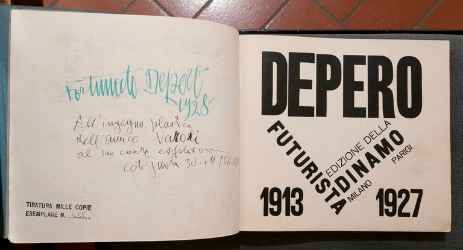 Fortunato Depero
1928
All'ingegno plastico
dell'amico
al suo
TIRATURA MILLE COPIE
ESEMPLARE N.
DEPERO
FUTURISTA
EDIZIONE DELLA
DINAMO
MILANO
PARIGI
1913
1927